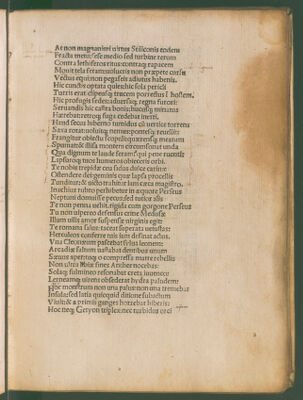 At non magnanimi uirtus Stiliconis eodem
Fracta metu: sese medio sed turbine rerum
Contra lethiferos rictus: contraq; rapacem
Mouit tela feram: uolucris non præpete cursu
Vectus equi: non pegaseis adiutus habenis.
Hic cunctis optata quies: hic sola pericli
Turris erat: clipeusq; trucem porrectus ī hostem.
Hic profugis sedes: aduersaq; regna furori:
Seruandis hic castra bonis: hucusq; minatus
Hærebat: retroq; fuga cedebat inerti.
Haud secus hiberno tumidus cū uertice torrens
Saxa rotat: uoluitq; nemus: pontesq; reuellit:
Frangitur obiectu scopuli: quærensq; meatum
Spumat: & illisa montem circumsonat unda.
Qua dignum te laude feram: qui pene ruenti:
Lapsuroq; tuos humeros obieceris orbi.
Te nobis trepidæ ceu sidus dulce carinæ
Ostendere dei: geminis quæ lapsa procellis
Tunditur: & uicto trahitur iam cæca magistro.
Inachius rubro perhibetur in æquore Perseus
Neptuni domuisse pecus: sed tutior alis
Te non penna uehit. rigida cum gorgone Perseus
Tu non uipereo defensus crine Medusæ
Illum uilis amor suspensæ uirginis egit
Te romana salus: taceat superata uetustas:
Herculeos conferre tuis iam desinat actus.
Vna Cleonæum pascebat silua leonem:
Arcadiæ saltum uastabat dentibus unum
Sæuus aper: tuq; o compressa matre rebellis
Non ultra libiæ fines Antæe nocebas:
Solaq; fulmineo resonabat creta iuuenco
Lerneamq; uirens obsederat hydra paludem:
Hoc monstrum non una palus: non una tremebat
Insula: sed latia quicquid ditione subactum
Viuit: & a primis ganges horrebat hiberis:
Hoc neq; Geryon triplex: nec turbidus orci